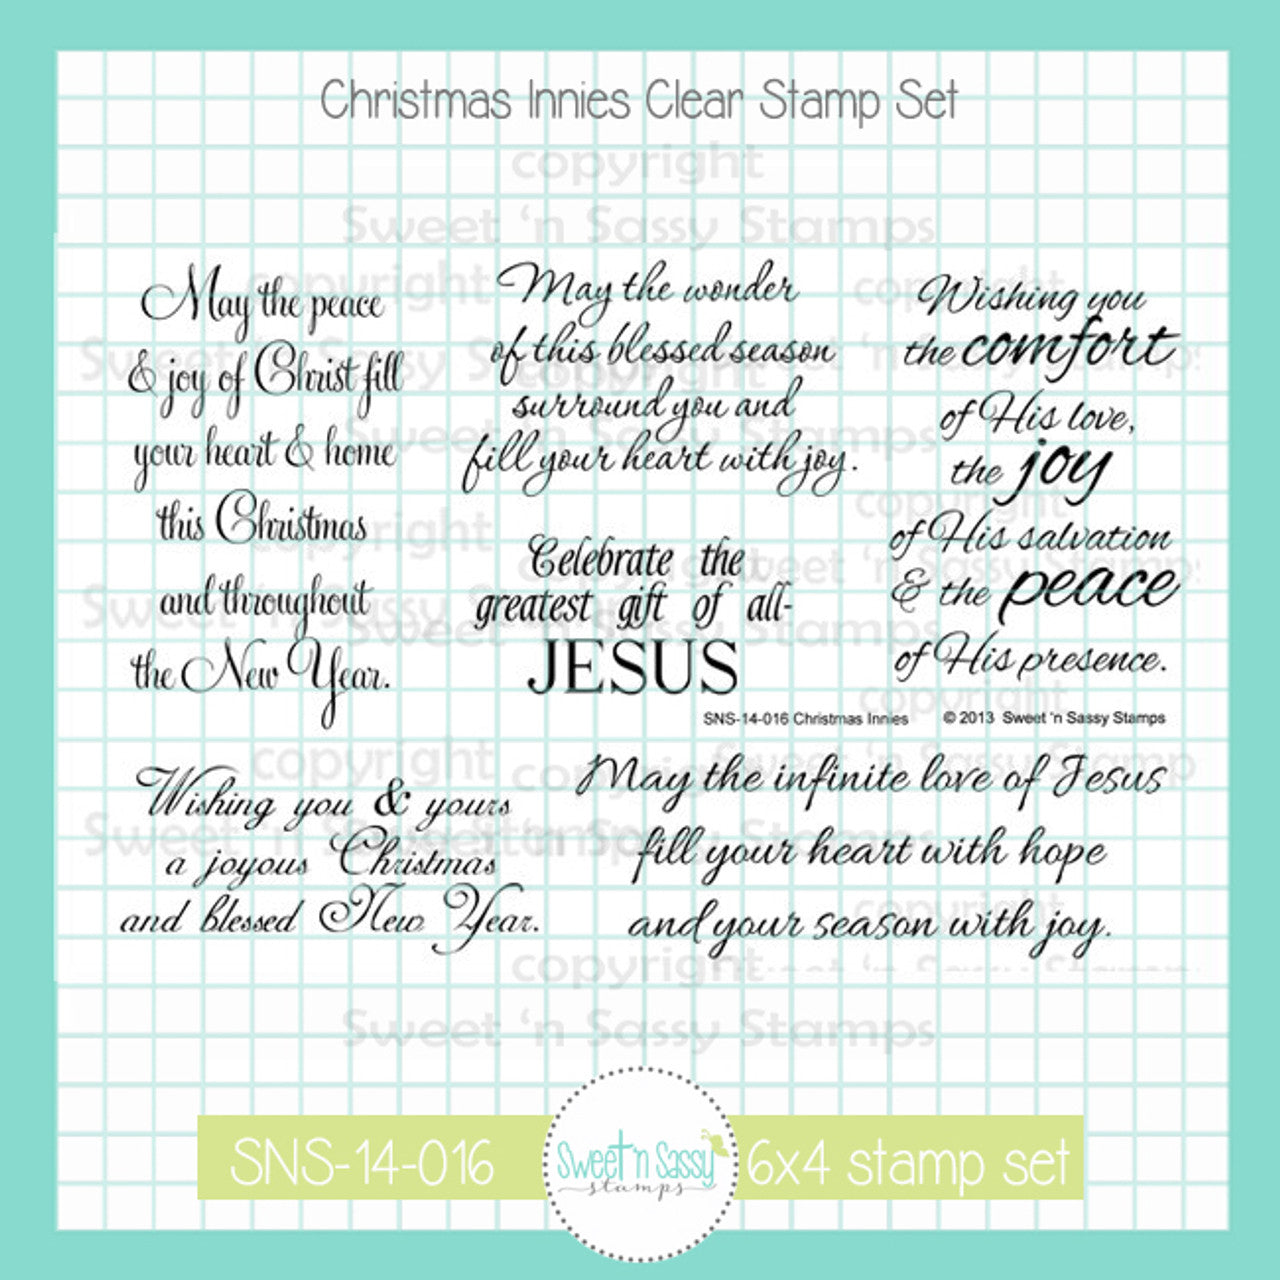 Christmas Innies Clear Stamp Set
copyright
Sweet 'n Sassy Stamps
May the peace
& joy of Christ fill
your heart & home
this Christmas
and throughout
the New Year.
May the wonder
of this blessed season
surround you and
fill your heart with joy.
Celebrate the
greatest gift of all-
JESUS
Wishing you
the comfort
of His love,
the joy
of His salvation
& the peace
of His presence.
SNS-14-016 Christmas Innies © 2013 Sweet 'n Sassy Stamps
Wishing you & yours
a joyous Christmas
and blessed New Year.
May the infinite love of Jesus
fill your heart with hope
and your season with joy.
copyright
Sweet 'n Sassy Stamps
SNS-14-016
Sweet 'n Sassy
stamps
6x4 stamp set